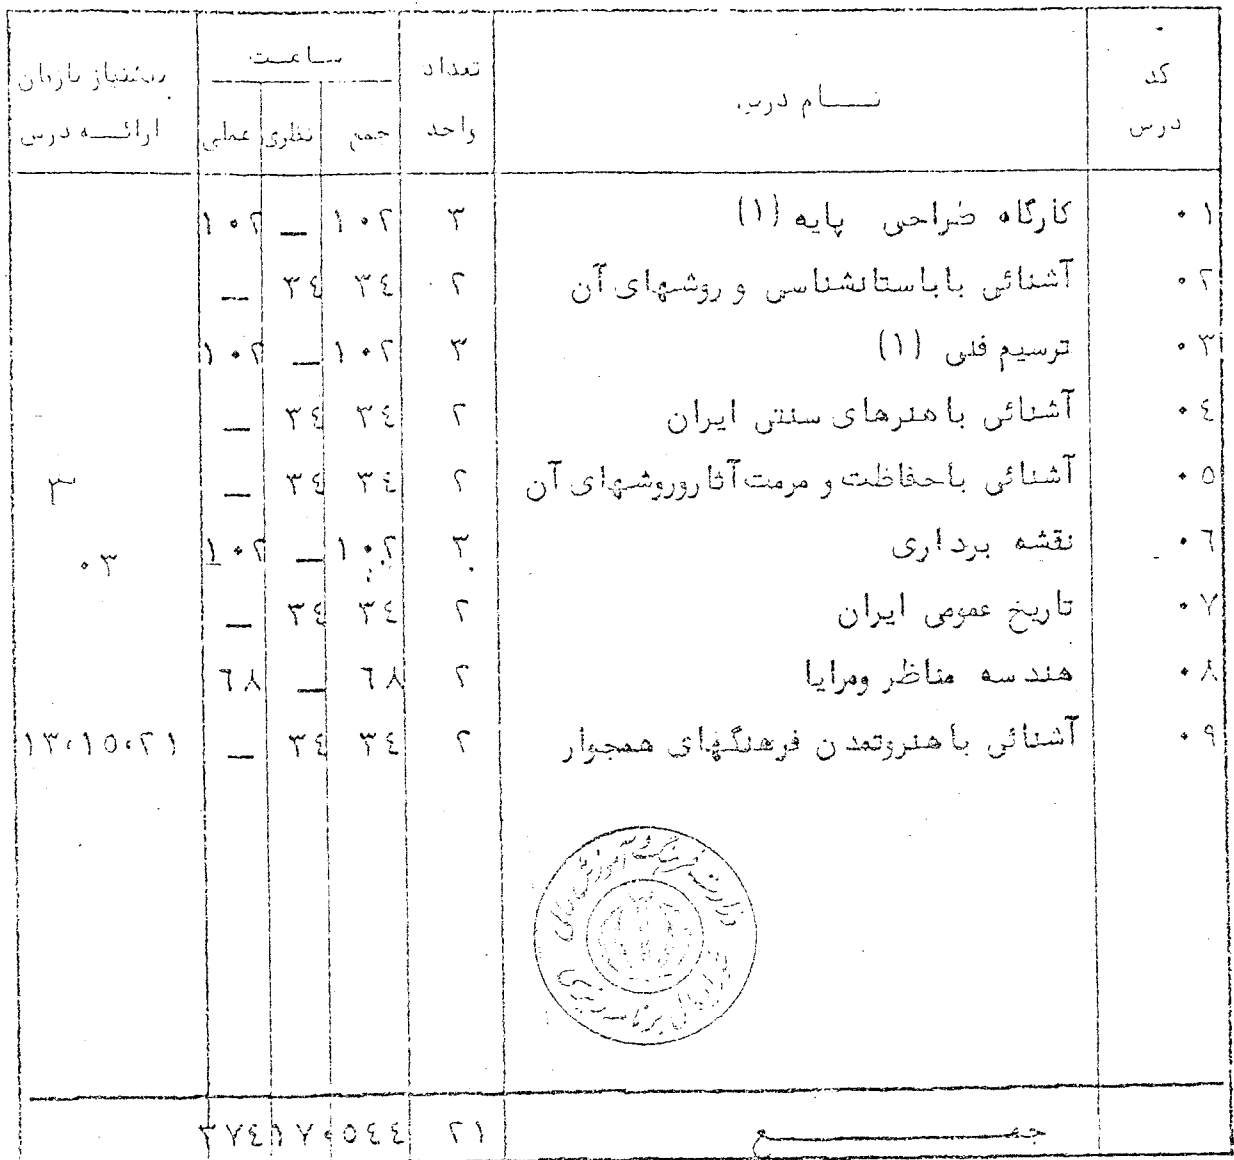 کد درس | نام درس | تعداد واحد | ساعت: جمع | نظری | عملی | پیشنیاز یا زمان ارائه درس
۰۱ | کارگاه طراحی پایه (۱) | ۳ | ۱۰۲ | — | ۱۰۲
۰۲ | آشنائی با باستانشناسی و روشهای آن | ۲ | ۳۴ | ۳۴ | —
۰۳ | ترسیم فنی (۱) | ۳ | ۱۰۲ | — | ۱۰۲
۰۴ | آشنائی با هنرهای سنتی ایران | ۲ | ۳۴ | ۳۴ | —
۰۵ | آشنائی با حفاظت و مرمت آثار و روشهای آن | ۲ | ۳۴ | ۳۴ | — | ۳
۰۶ | نقشه برداری | ۳ | ۱۰۲ | — | ۱۰۲ | ۰۳
۰۷ | تاریخ عمومی ایران | ۲ | ۳۴ | ۳۴ | —
۰۸ | هندسه مناظر و مرایا | ۲ | ۶۸ | — | ۶۸
۰۹ | آشنائی با هنر و تمدن فرهنگهای همجوار | ۲ | ۳۴ | ۳۴ | — | ۱۳،۱۵،۲۱
وزارت فرهنگ و آموزش عالی
شورایعالی برنامه ریزی
جمع | ۲۱ | ۵۴۴ | ۱۷۰ | ۳۷۴